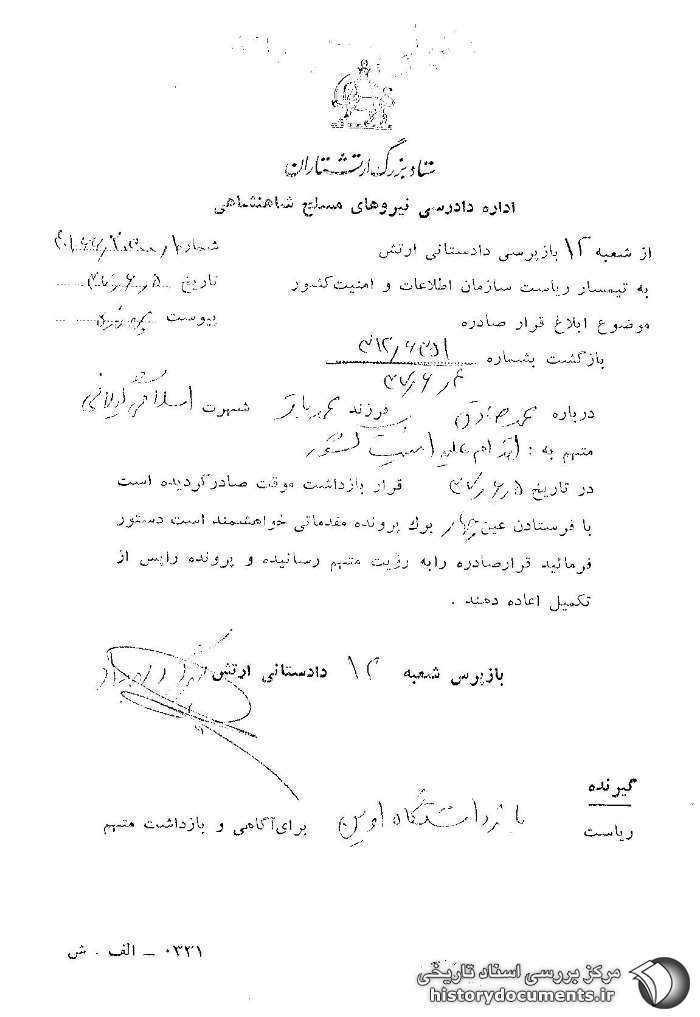 ستاد بزرگ ارتشتاران
اداره دادرسی نیروهای مسلح شاهنشاهی
از شعبه ۱۲ بازپرسی دادستانی ارتش
شماره
به تیمسار ریاست سازمان اطلاعات و امنیت کشور
تاریخ ۳۷٫۶٫۵
موضوع ابلاغ قرار صادره
پیوست
بازگشت بشماره ۳۱۲٫۶۳۵۱
۳۷٫۶٫۴
درباره محمد صادق فرزند محمد باقر شهرت اسلامی گیلانی
متهم به : اقدام علیه امنیت کشور
در تاریخ ۳۷٫۶٫۵ قرار بازداشت موقت صادر گردیده است
با فرستادن عین چهار برك پرونده مقدماتی خواهشمند است دستور
فرمائید قرار صادره را به رؤیت متهم رسانیده و پرونده را پس از
تکمیل اعاده دهند .
بازپرس شعبه ۱۲ دادستانی ارتش
گیرنده
ریاست بازداشتگاه اوین برای آگاهی و بازداشت متهم
۰۳۳۱ - الف . ش
مرکز بررسی اسناد تاریخی
historydocuments.ir